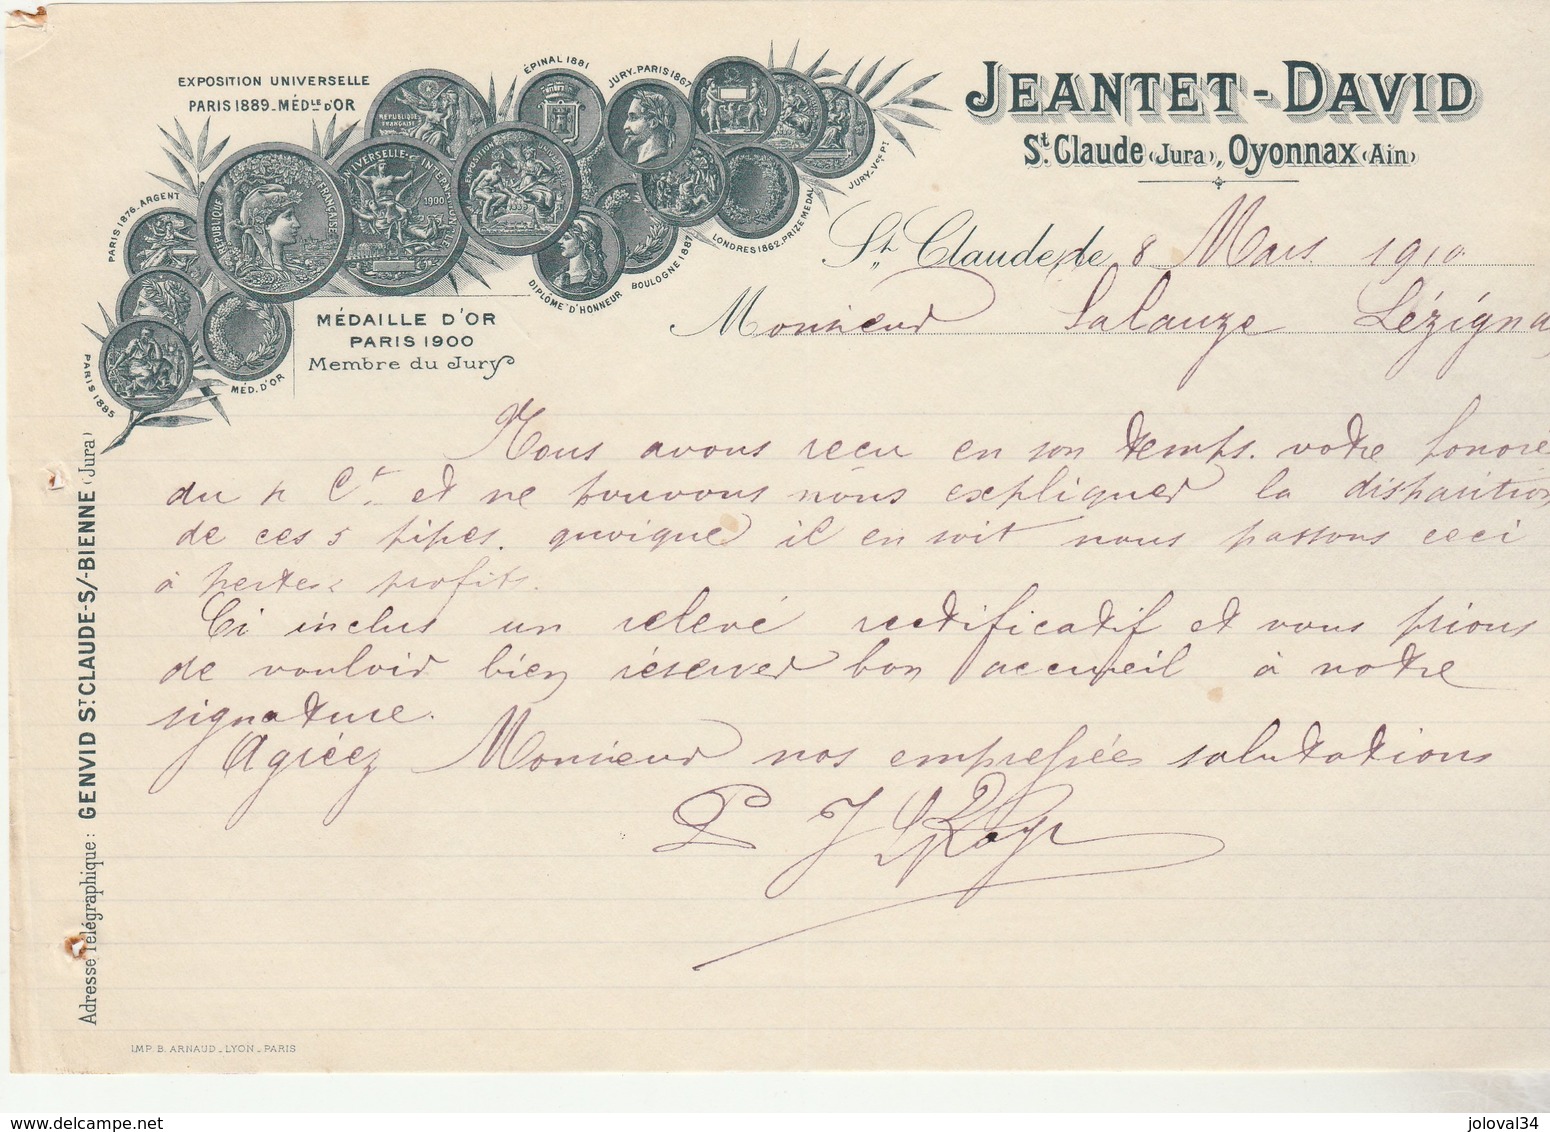 EXPOSITION UNIVERSELLE
PARIS 1889 - MÉDLE D'OR
ÉPINAL 1881
JURY-PARIS 1867
JURY-VSEPT
PARIS 1876-ARGENT
RÉPUBLIQUE FRANÇAISE
RÉPUBLIQUE FRANÇAISE
1900
LONDRES 1862. PRIZE MEDAL
BOULOGNE 1887
DIPLÔME D'HONNEUR
MÉD. D'OR
PARIS 1885
MÉDAILLE D'OR
PARIS 1900
Membre du Jury
JEANTET-DAVID
St. Claude (Jura), Oyonnax (Ain)
St Claude, le 8 Mars 1910
Monsieur Lalauze Lézigna
Nous avons reçu en son temps votre honoré
du 4 Ct et ne pouvons nous expliquer la disparition
de ces 5 pipes. quoique il en soit nous passons ceci
à pertes & profits.
Ci inclus un relevé rectificatif et vous prions
de vouloir bien réserver bon accueil à notre
signature.
Agréez Monsieur nos empressées salutations
P J
Adresse Télégraphique: GENVID ST CLAUDE-S/-BIENNE (Jura)
IMP. B. ARNAUD_LYON_PARIS
joloval34